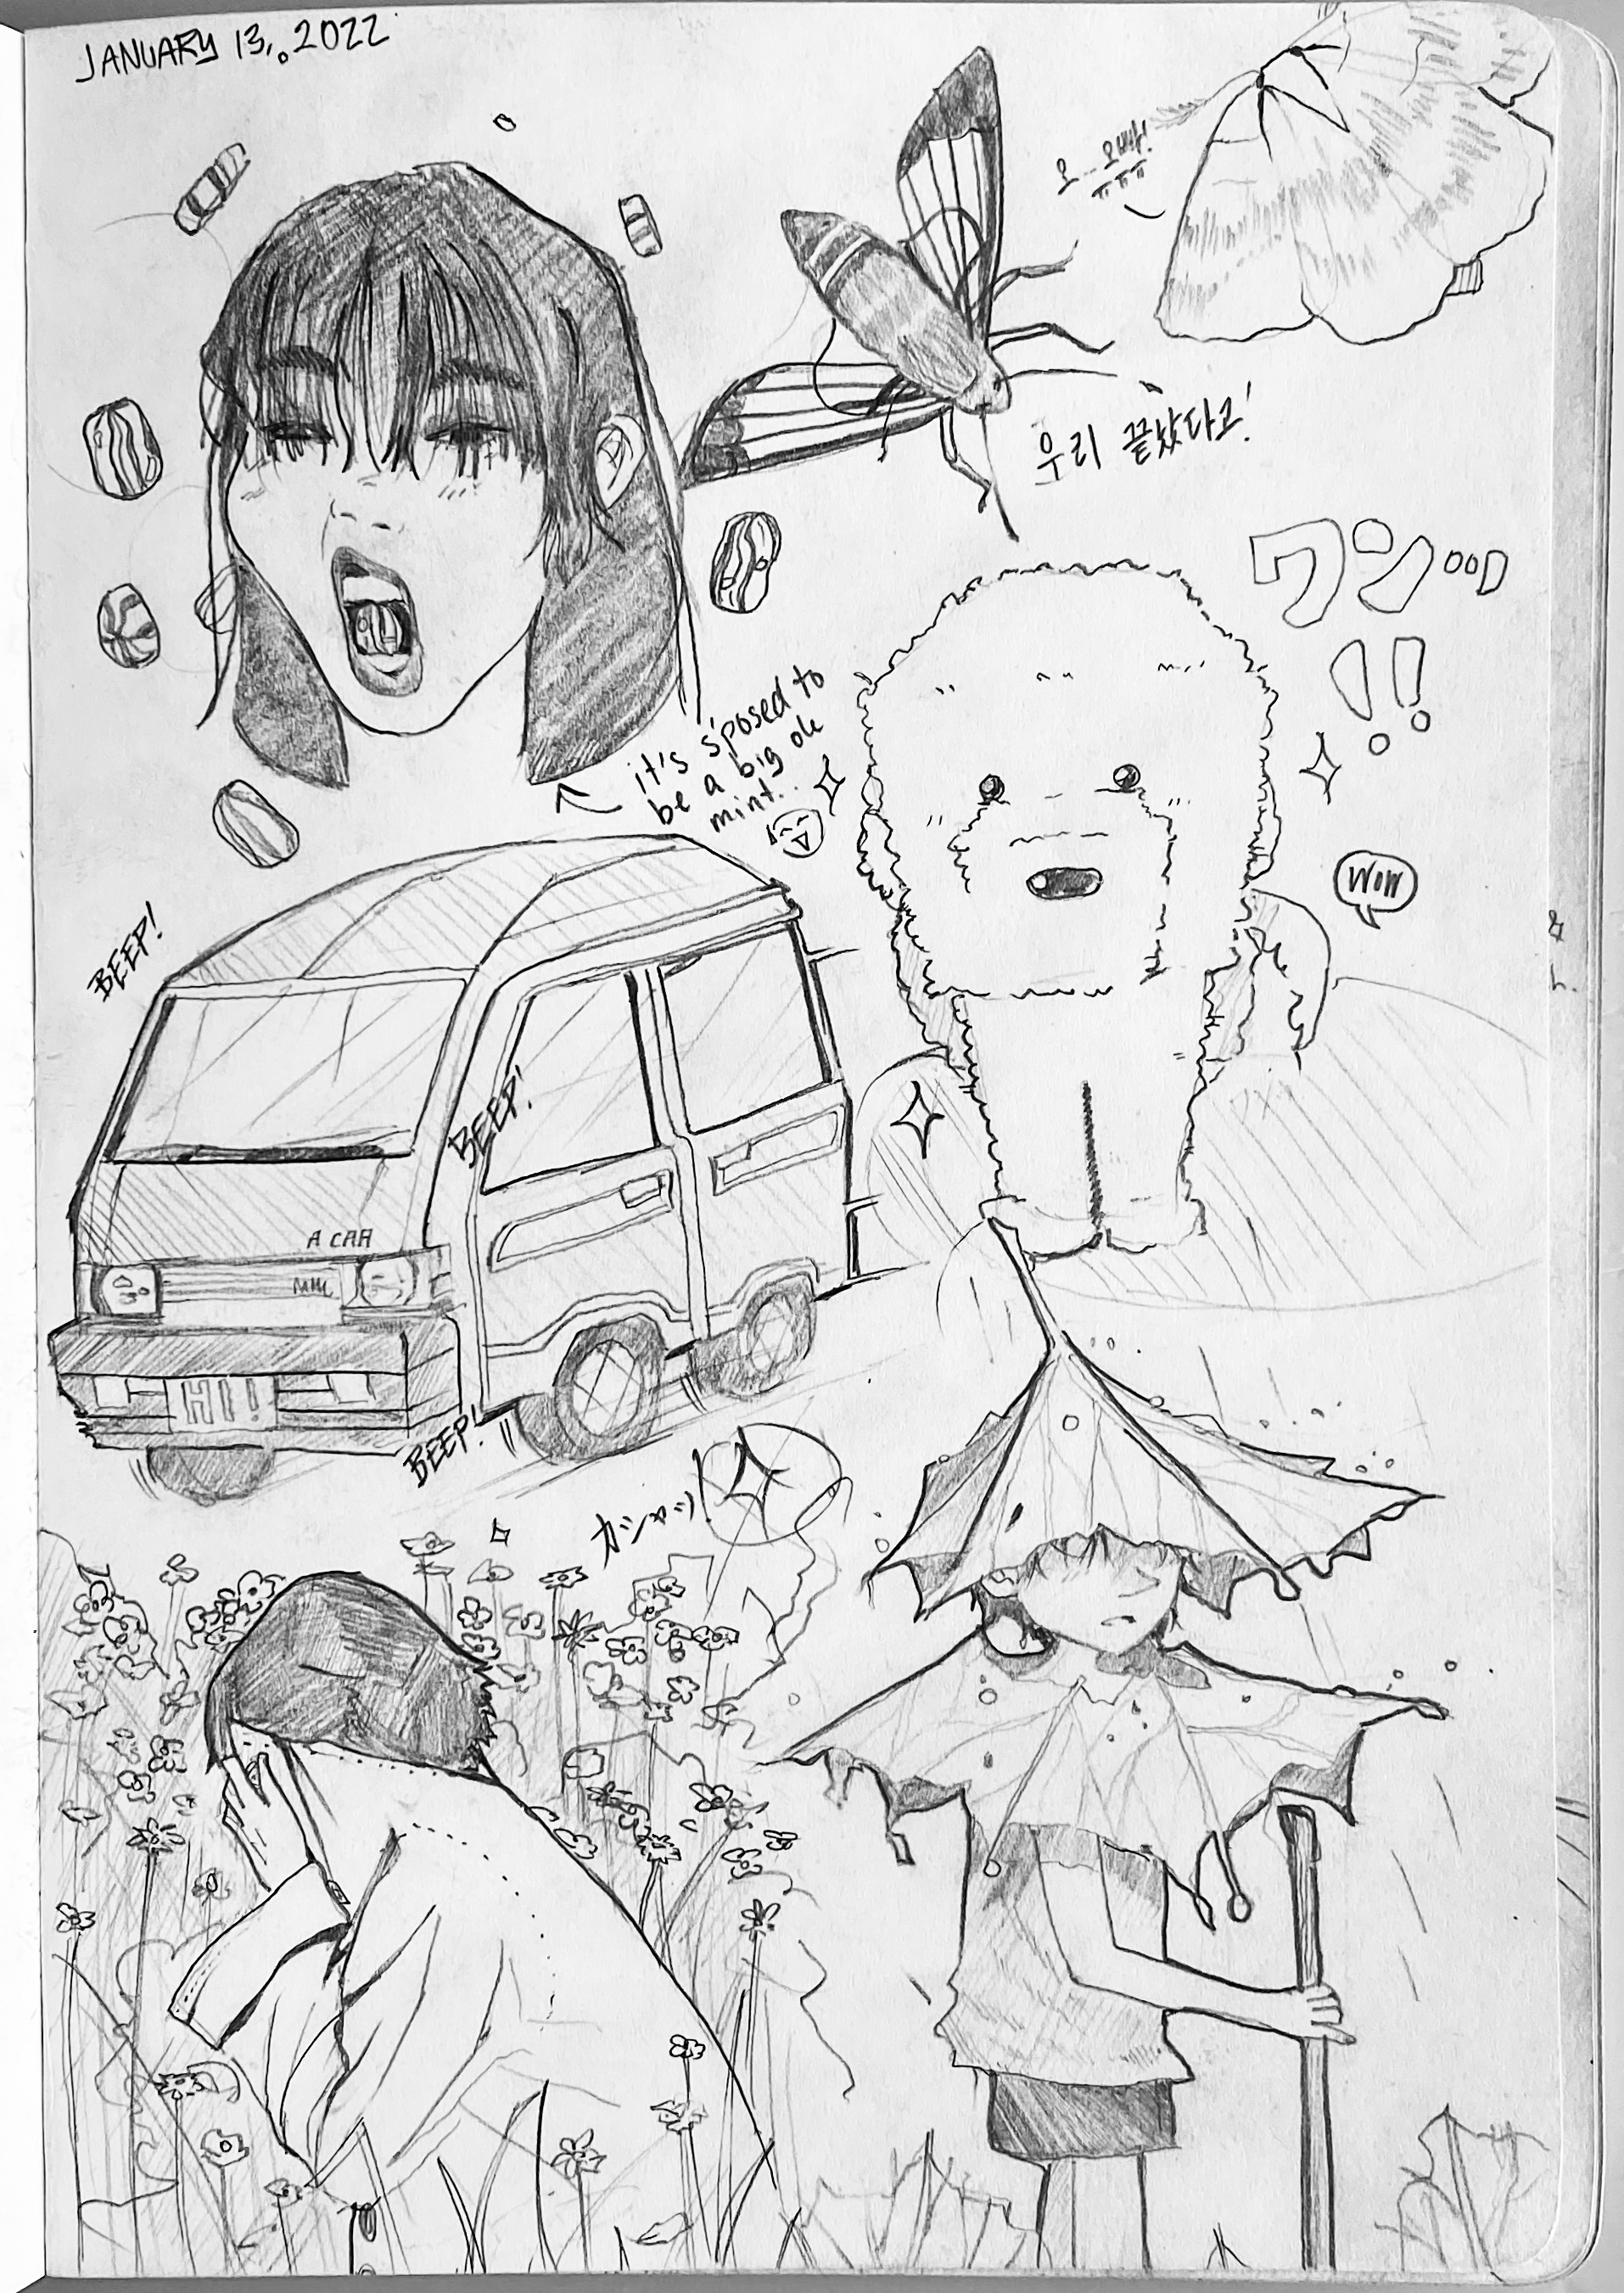 JANUARY 13, 2022
오...오빠!
ㅠㅠㅠ
우리 끝났다고!
ワン...
!!
it's s'posed to
be a big ole
mint...
WOW
BEEP!
BEEP!
A CAR
HI!
BEEP!
カシャッ!